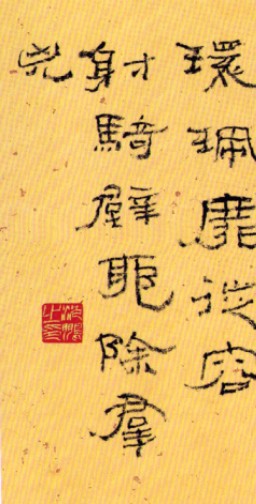 環珮靡從容
射騎辟耶除群
兇